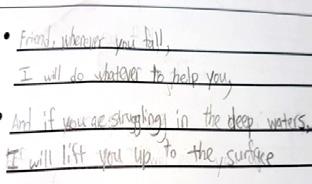 • Friend, whenever you fall,
I will do whatever to help you,
• And if you are struggling in the deep waters,
I will lift you up to the surface